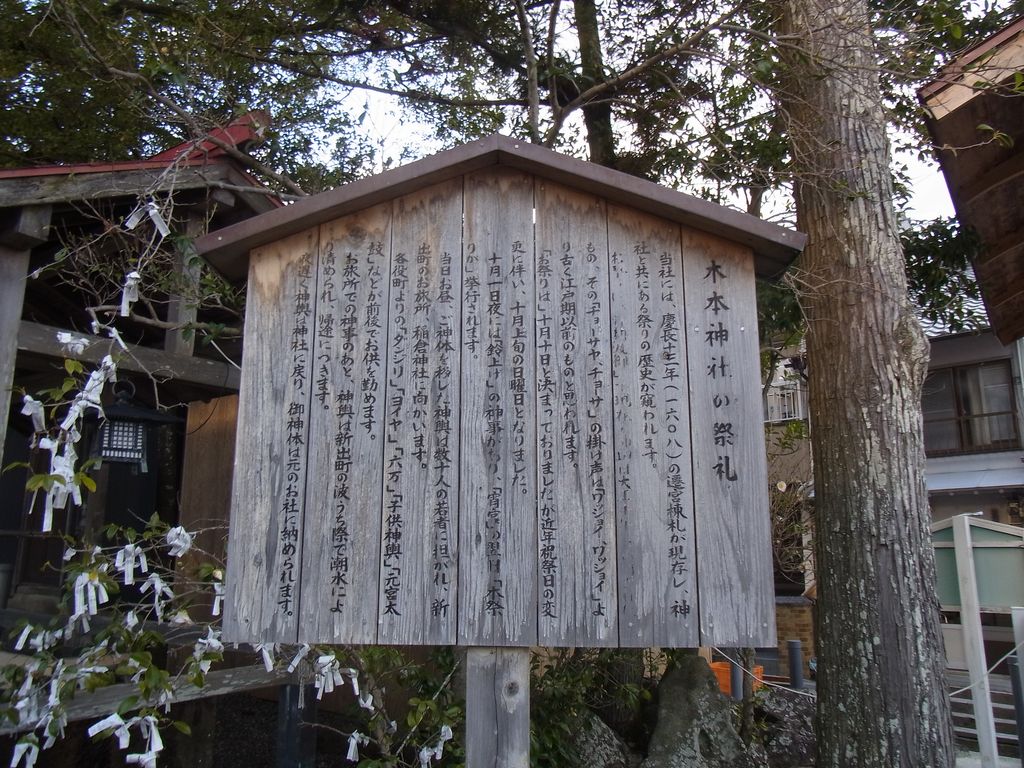 木本神社の祭礼
当社には、慶長十三年(一六〇八)の遷宮棟札が現存し、神
社と共にある祭りの歴史が窺われます。
もの、その「チョーサヤ、チョーサ」の掛け声は「ワッショイ、ワッショイ」よ
り古く江戸期以前のものと思われます。
「お祭りは」十月十日と決まっておりましたが近年祝祭日の変
更に伴い、十月上旬の日曜日となりました。
十月一日夜には「鈴上げ」の神事がおり、「宵宮」の翌日「本祭
りが」挙行されます。
当日お昼、ご神体を移した神輿は数十人の若者に担がれ、新
出町のお旅所、稲倉神社に向かいます。
各役町よりの「ダンジリ」「ヨイヤ」「六方」「子供神輿」「元宮太
鼓」などが前後でお供を勤めます。
お旅所での神事のあと、神輿は新出町の波うち際で潮水によ
り清められ、帰途につきます。
夜遅く神輿は神社に戻り、御神体は元のお社に納められます。